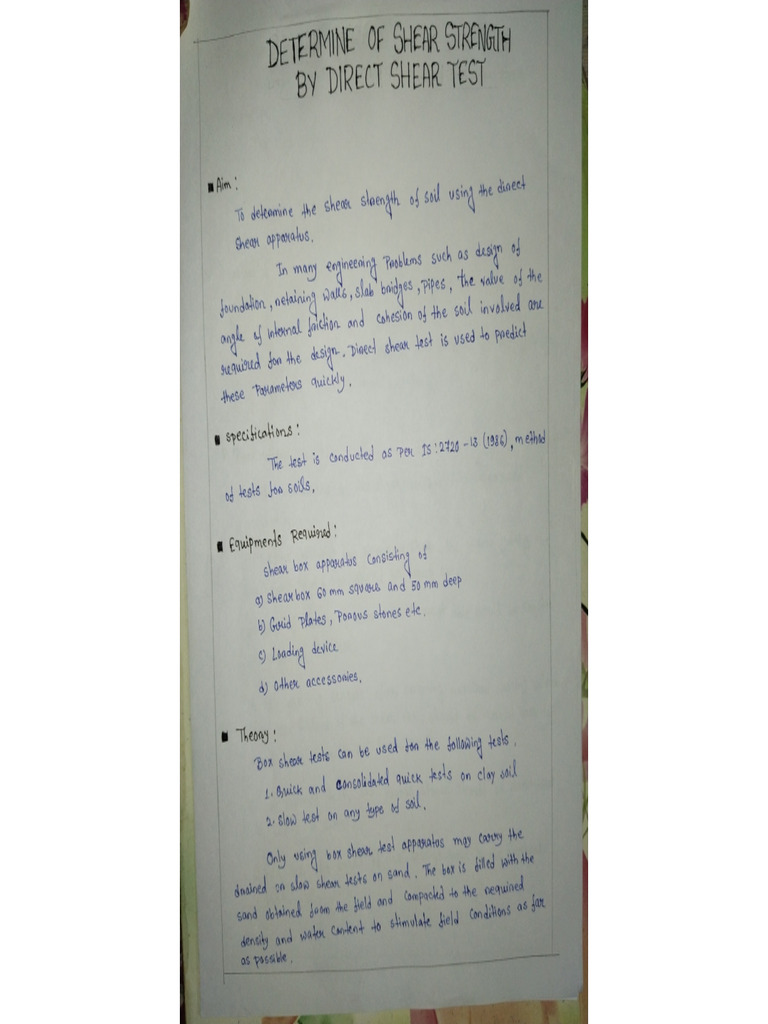 DETERMINE OF SHEAR STRENGTH
BY DIRECT SHEAR TEST
Aim:
To determine the shear strength of soil using the direct
shear apparatus.
In many engineering Problems such as design of
foundation, retaining walls, slab bridges, pipes, the value of the
angle of internal friction and cohesion of the soil involved are
required for the design. Direct shear test is used to predict
these Parameters quickly.
Specifications:
The test is conducted as per IS:2720-13 (1986), method
of tests for soils.
Equipments Required:
Shear box apparatus consisting of
a) Shearbox 60 mm square and 50 mm deep
b) Grid Plates, Porous stones etc.
c) Loading device
d) Other accessories.
Theory:
Box shear tests can be used for the following tests.
1. Quick and consolidated quick tests on clay soil
2. Slow test on any type of soil.
Only using box shear test apparatus may carry the
drained or slow shear tests on sand. The box is filled with the
sand obtained from the field and compacted to the required
density and water content to stimulate field conditions as far
as possible.